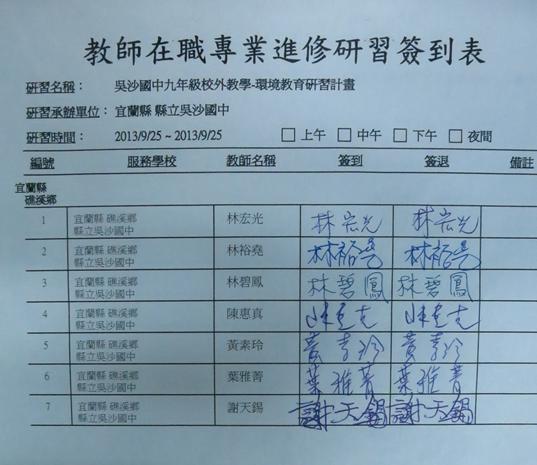 教師在職專業進修研習簽到表
研習名稱： 吳沙國中九年級校外教學-環境教育研習計畫
研習承辦單位： 宜蘭縣 縣立吳沙國中
研習時間： 2013/9/25 ~ 2013/9/25 □ 上午 □ 中午 □ 下午 □ 夜間
編號 服務學校 教師名稱 簽到 簽退 備註
宜蘭縣
礁溪鄉
1 宜蘭縣 礁溪鄉 林宏光 林宏光 林宏光
縣立吳沙國中
2 宜蘭縣 礁溪鄉 林裕堯 林裕堯 林裕堯
縣立吳沙國中
3 宜蘭縣 礁溪鄉 林碧鳳 林碧鳳 林碧鳳
縣立吳沙國中
4 宜蘭縣 礁溪鄉 陳惠真 陳惠真 陳惠真
縣立吳沙國中
5 宜蘭縣 礁溪鄉 黃素玲 黃素玲 黃素玲
縣立吳沙國中
6 宜蘭縣 礁溪鄉 葉雅菁 葉雅菁 葉雅菁
縣立吳沙國中
7 宜蘭縣 礁溪鄉 謝天錫 謝天錫 謝天錫
縣立吳沙國中